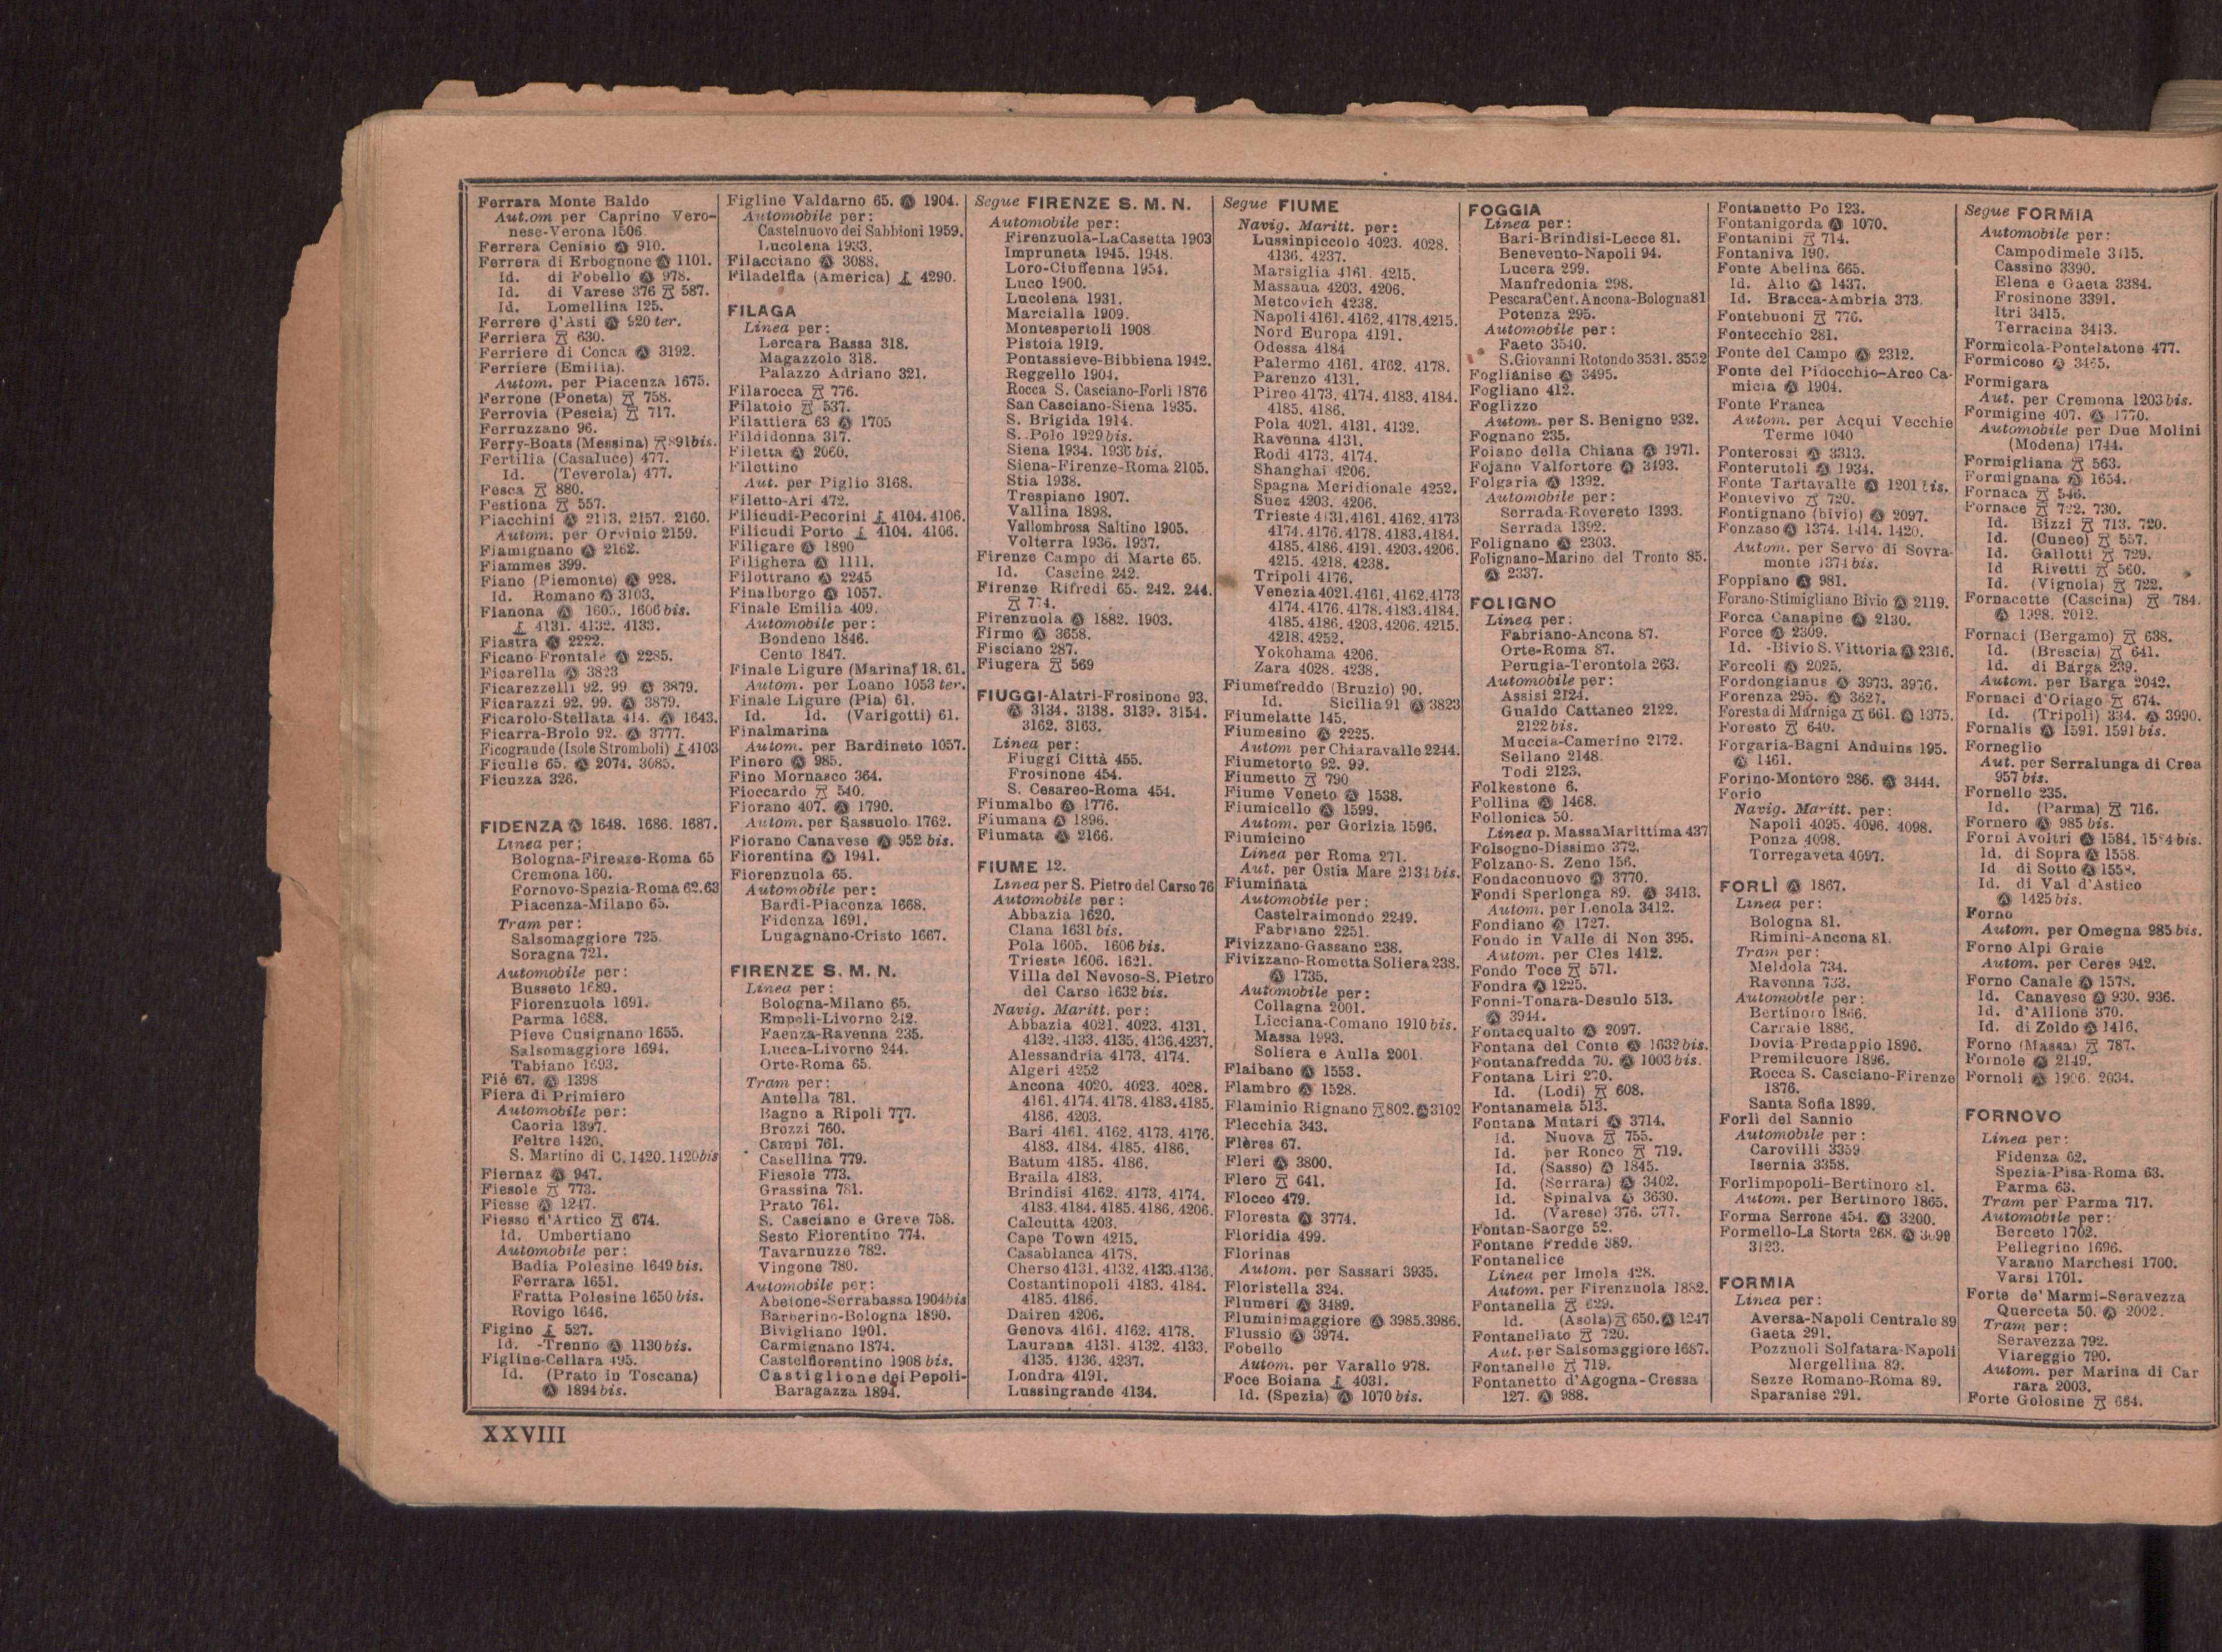 Ferrara Monte Baldo
Aut.om per Caprino Vero-
nese-Verona 1506
Ferrera Cenisio Ⓐ 910.
Ferrera di Erbognone Ⓐ 1101.
Id. di Fobello Ⓐ 978.
Id. di Varese 376 587.
Id. Lomellina 125.
Ferrere d'Asti Ⓐ 920 ter.
Ferriera 630.
Ferriere di Conca Ⓐ 3192.
Ferriere (Emilia).
Autom. per Piacenza 1675.
Ferrone (Poneta) 758.
Ferrovia (Pescia) 717.
Ferruzzano 96.
Ferry-Boats (Messina) 891 bis.
Fertilia (Casaluce) 477.
Id. (Teverola) 477.
Fesca 880.
Festiona 557.
Fiacchini Ⓐ 2113. 2157. 2160.
Autom. per Orvinio 2159.
Fiamignano Ⓐ 2162.
Fiammes 399.
Fiano (Piemonte) Ⓐ 928.
Id. Romano Ⓐ 3103.
Fianona Ⓐ 1605. 1606 bis.
4131. 4132. 4133.
Fiastra Ⓐ 2222.
Ficano Frontale Ⓐ 2285.
Ficarella Ⓐ 3823
Ficarezzelli 92. 99. Ⓐ 3879.
Ficarazzi 92. 99. Ⓐ 3879.
Ficarolo-Stellata 414. Ⓐ 1643.
Ficarra-Brolo 92. Ⓐ 3777.
Ficogrande (Isole Stromboli) 4103
Ficulle 65. Ⓐ 2074. 3085.
Ficuzza 326.
FIDENZA Ⓐ 1648. 1686. 1687.
Linea per:
Bologna-Firenze-Roma 65
Cremona 160.
Fornovo-Spezia-Roma 62.63
Piacenza-Milano 65.
Tram per:
Salsomaggiore 725
Soragna 721.
Automobile per:
Busseto 1689.
Fiorenzuola 1691.
Parma 1688.
Pieve Cusignano 1655.
Salsomaggiore 1694.
Tabiano 1693.
Fié 67. Ⓐ 1398
Fiera di Primiero
Automobile per:
Caoria 1397.
Feltre 1420.
S. Martino di C. 1420. 1420 bis
Fiernaz Ⓐ 947.
Fiesole 773.
Fiesse Ⓐ 1247.
Fiesso d'Artico 674.
Id. Umbertiano
Automobile per:
Badia Polesine 1649 bis.
Ferrara 1651.
Fratta Polesine 1650 bis.
Rovigo 1646.
Figino 527.
Id. -Trenno Ⓐ 1130 bis.
Figline-Cellara 495.
Id. (Prato in Toscana)
Ⓐ 1894 bis.
XXVIII
Figline Valdarno 65. Ⓐ 1904.
Automobile per:
Castelnuovo dei Sabbioni 1959.
Lucolena 1933.
Filacciano Ⓐ 3088.
Filadelfia (America) 4290.
FILAGA
Linea per:
Lercara Bassa 318.
Magazzolo 318.
Palazzo Adriano 321.
Filarocca 776.
Filatoio 537.
Filattiera 63 Ⓐ 1705
Fildidonna 317.
Filetta Ⓐ 2060.
Filettino
Aut. per Piglio 3168.
Filetto-Ari 472.
Filicudi-Pecorini 4104. 4106.
Filicudi Porto 4104. 4106.
Filigare Ⓐ 1890
Filighera Ⓐ 1111.
Filottrano Ⓐ 2245
Finalborgo Ⓐ 1057.
Finale Emilia 409.
Automobile per:
Bondeno 1846.
Cento 1847.
Finale Ligure (Marina) 18. 61.
Autom. per Loano 1053 ter.
Finale Ligure (Pia) 61.
Id. Id. (Varigotti) 61.
Finalmarina
Autom. per Bardineto 1057.
Finero Ⓐ 985.
Fino Mornasco 364.
Fioccardo 540.
Fiorano 407. Ⓐ 1790.
Autom. per Sassuolo 1762.
Fiorano Canavese Ⓐ 952 bis.
Fiorentina Ⓐ 1941.
Fiorenzuola 65.
Automobile per:
Bardi-Piacenza 1668.
Fidenza 1691.
Lugagnano-Cristo 1667.
FIRENZE S. M. N.
Linea per:
Bologna-Milano 65.
Empoli-Livorno 242.
Faenza-Ravenna 235.
Lucca-Livorno 244.
Orte-Roma 65.
Tram per:
Antella 781.
Bagno a Ripoli 777.
Brozzi 760.
Campi 761.
Casellina 779.
Fiesole 773.
Grassina 781.
Prato 761.
S. Casciano e Greve 758.
Sesto Fiorentino 774.
Tavarnuzze 782.
Vingone 780.
Automobile per:
Abetone-Serrabassa 1904 bis
Barberino-Bologna 1890.
Bivigliano 1901.
Carmignano 1874.
Castelfiorentino 1908 bis.
Castiglione dei Pepoli-
Baragazza 1894.
Segue FIRENZE S. M. N.
Automobile per:
Firenzuola-La Casetta 1903
Impruneta 1945. 1948.
Loro-Ciuffenna 1954.
Luco 1900.
Lucolena 1931.
Marcialla 1909.
Montespertoli 1908
Pistoia 1919.
Pontassieve-Bibbiena 1942.
Reggello 1904.
Rocca S. Casciano-Forlì 1876
San Casciano-Siena 1935.
S. Brigida 1914.
S. Polo 1929 bis.
Siena 1934. 1936 bis.
Siena-Firenze-Roma 2105.
Stia 1938.
Trespiano 1907.
Vallina 1898.
Vallombrosa Saltino 1905.
Volterra 1936. 1937.
Firenze Campo di Marte 65.
Id. Cascine 242.
Firenze Rifredi 65. 242. 244.
774.
Firenzuola Ⓐ 1882. 1903.
Firmo Ⓐ 3658.
Fisciano 287.
Fiugera 569
FIUGGI-Alatri-Frosinone 93.
Ⓐ 3134. 3138. 3139. 3154.
3162. 3163.
Linea per:
Fiuggi Città 455.
Frosinone 454.
S. Cesareo-Roma 454.
Fiumalbo Ⓐ 1776.
Fiumana Ⓐ 1896.
Fiumata Ⓐ 2166.
FIUME 12.
Linea per S. Pietro del Carso 76
Automobile per:
Abbazia 1620.
Clana 1631 bis.
Pola 1605. 1606 bis.
Trieste 1606. 1621.
Villa del Nevoso-S. Pietro
del Carso 1632 bis.
Navig. Maritt. per:
Abbazia 4021. 4023. 4131.
4132. 4133. 4135. 4136. 4237.
Alessandria 4173. 4174.
Algeri 4252
Ancona 4020. 4023. 4028.
4161. 4174. 4178. 4183. 4185.
4186. 4203.
Bari 4161. 4162. 4173. 4176.
4183. 4184. 4185. 4186.
Batum 4185. 4186.
Braila 4183.
Brindisi 4162. 4173. 4174.
4183. 4184. 4185. 4186. 4206.
Calcutta 4203.
Cape Town 4215.
Casablanca 4178.
Cherso 4131. 4132. 4133. 4136.
Costantinopoli 4183. 4184.
4185. 4186.
Dairen 4206.
Genova 4161. 4162. 4178.
Laurana 4131. 4132. 4133.
4135. 4136. 4237.
Londra 4191.
Lussingrande 4134.
Segue FIUME
Navig. Maritt. per:
Lussinpiccolo 4023. 4028.
4136. 4237.
Marsiglia 4161. 4215.
Massaua 4203. 4206.
Metcovich 4238.
Napoli 4161. 4162. 4178. 4215.
Nord Europa 4191.
Odessa 4184
Palermo 4161. 4162. 4178.
Parenzo 4131.
Pireo 4173. 4174. 4183. 4184.
4185. 4186.
Pola 4021. 4131. 4132.
Ravenna 4131.
Rodi 4173. 4174.
Shanghai 4206.
Spagna Meridionale 4252.
Suez 4203. 4206.
Trieste 4131. 4161. 4162. 4173
4174. 4176. 4178. 4183. 4184.
4185. 4186. 4191. 4203. 4206.
4215. 4218. 4238.
Tripoli 4176.
Venezia 4021. 4161. 4162. 4173
4174. 4176. 4178. 4183. 4184.
4185. 4186. 4203. 4206. 4215.
4218. 4252.
Yokohama 4206.
Zara 4028. 4238.
Fiumefreddo (Bruzio) 90.
Id. Sicilia 91 Ⓐ 3823
Fiumelatte 145.
Fiumesino Ⓐ 2225.
Autom per Chiaravalle 2244.
Fiumetorto 92. 99.
Fiumetto 790
Fiume Veneto Ⓐ 1538.
Fiumicello Ⓐ 1599.
Autom. per Gorizia 1596.
Fiumicino
Linea per Roma 271.
Aut. per Ostia Mare 2131 bis.
Fiuminata
Automobile per:
Castelraimondo 2249.
Fabriano 2251.
Fivizzano-Gassano 238.
Fivizzano-Rometta Soliera 238.
Ⓐ 1735.
Automobile per:
Collagna 2001.
Licciana-Comano 1910 bis.
Massa 1993.
Soliera e Aulla 2001.
Flaibano Ⓐ 1553.
Flambro Ⓐ 1528.
Flaminio Rignano 802. Ⓐ 3102
Flecchia 343.
Flères 67.
Fleri Ⓐ 3800.
Flero 641.
Flocco 479.
Floresta Ⓐ 3774.
Floridia 499.
Florinas
Autom. per Sassari 3935.
Floristella 324.
Flumeri Ⓐ 3489.
Fluminimaggiore Ⓐ 3985. 3986.
Flussio Ⓐ 3974.
Fobello
Autom. per Varallo 978.
Foce Boiana 4031.
Id. (Spezia) Ⓐ 1070 bis.
FOGGIA
Linea per:
Bari-Brindisi-Lecce 81.
Benevento-Napoli 94.
Lucera 299.
Manfredonia 298.
Pescara Cent. Ancona-Bologna 81
Potenza 295.
Automobile per:
Faeto 3540.
S. Giovanni Rotondo 3531. 3532
Foglianise Ⓐ 3495.
Fogliano 412.
Foglizzo
Autom. per S. Benigno 932.
Fognano 235.
Foiano della Chiana Ⓐ 1971.
Fojano Valfortore Ⓐ 3493.
Folgaria Ⓐ 1392.
Automobile per:
Serrada-Rovereto 1393.
Serrada 1392.
Folignano Ⓐ 2303.
Folignano-Marino del Tronto 85.
Ⓐ 2337.
FOLIGNO
Linea per:
Fabriano-Ancona 87.
Orte-Roma 87.
Perugia-Terontola 263.
Automobile per:
Assisi 2124.
Gualdo Cattaneo 2122.
2122 bis.
Muccia-Camerino 2172.
Sellano 2148.
Todi 2123.
Folkestone 6.
Follina Ⓐ 1468.
Follonica 50.
Linea p. Massa Marittima 437
Folsogno-Dissimo 372.
Folzano-S. Zeno 156.
Fondaconuovo Ⓐ 3770.
Fondi Sperlonga 89. Ⓐ 3413.
Autom. per Lenola 3412.
Fondiano Ⓐ 1727.
Fondo in Valle di Non 395.
Autom. per Cles 1412.
Fondo Toce 571.
Fondra Ⓐ 1225.
Fonni-Tonara-Desulo 513.
Ⓐ 3944.
Fontacqualto Ⓐ 2097.
Fontana del Conte Ⓐ 1632 bis.
Fontanafredda 70. Ⓐ 1003 bis.
Fontana Liri 270.
Id. (Lodi) 608.
Fontanamela 513.
Fontana Mutari Ⓐ 3714.
Id. Nuova 755.
Id. per Ronco 719.
Id. (Sasso) Ⓐ 1845.
Id. (Serrara) Ⓐ 3402.
Id. Spinalva Ⓐ 3630.
Id. (Varese) 376. 377.
Fontan-Saorge 52.
Fontane Fredde 389.
Fontanelice
Linea per Imola 428.
Autom. per Firenzuola 1882.
Fontanella 629.
Id. (Asola) 650. Ⓐ 1247
Fontanellato 720.
Aut. per Salsomaggiore 1687.
Fontanelle 719.
Fontanetto d'Agogna-Cressa
127. Ⓐ 988.
Fontanetto Po 123.
Fontanigorda Ⓐ 1070.
Fontanini 714.
Fontaniva 190.
Fonte Abelina 665.
Id. Alto Ⓐ 1437.
Id. Bracca-Ambria 373.
Fontebuoni 776.
Fontecchio 281.
Fonte del Campo Ⓐ 2312.
Fonte del Pidocchio-Arco Ca-
micia Ⓐ 1904.
Fonte Franca
Autom. per Acqui Vecchie
Terme 1040
Ponterossi Ⓐ 3313.
Fonterutoli Ⓐ 1934.
Fonte Tartavalle Ⓐ 1201 bis.
Fontevivo 720.
Fontignano (bivio) Ⓐ 2097.
Fonzaso Ⓐ 1374. 1414. 1420.
Autom. per Servo di Sovra-
monte 1374 bis.
Foppiano Ⓐ 981.
Forano-Stimigliano Bivio Ⓐ 2119.
Forca Canapine Ⓐ 2130.
Force Ⓐ 2309.
Id. -Bivio S. Vittoria Ⓐ 2316.
Forcoli Ⓐ 2025.
Fordongianus Ⓐ 3973. 3976.
Forenza 295. Ⓐ 3627.
Foresta di Marniga 661. Ⓐ 1375.
Foresto 640.
Forgaria-Bagni Anduins 195.
Ⓐ 1461.
Forino-Montoro 286. Ⓐ 3444.
Forio
Navig. Maritt. per:
Napoli 4095. 4096. 4098.
Ponza 4098.
Torregaveta 4097.
FORLÌ Ⓐ 1867.
Linea per:
Bologna 81.
Rimini-Ancona 81.
Tram per:
Meldola 734.
Ravenna 733.
Automobile per:
Bertinoro 1866.
Carraie 1886.
Dovia-Predappio 1896.
Premilcuore 1896.
Rocca S. Casciano-Firenze
1876.
Santa Sofia 1899.
Forlì del Sannio
Automobile per:
Carovilli 3359
Isernia 3358.
Forlimpopoli-Bertinoro 81.
Autom. per Bertinoro 1865.
Forma Serrone 454. Ⓐ 3200.
Formello-La Storta 268. Ⓐ 3099
3123.
FORMIA
Linea per:
Aversa-Napoli Centrale 89
Gaeta 291.
Pozzuoli Solfatara-Napoli
Mergellina 89.
Sezze Romano-Roma 89.
Sparanise 291.
Segue FORMIA
Automobile per:
Campodimele 3415.
Cassino 3390.
Elena e Gaeta 3384.
Frosinone 3391.
Itri 3415.
Terracina 3413.
Formicola-Pontelatone 477.
Formicoso Ⓐ 3465.
Formigara
Aut. per Cremona 1203 bis.
Formigine 407. Ⓐ 1770.
Automobile per Due Molini
(Modena) 1744.
Formigliana 563.
Formignana Ⓐ 1654.
Fornaca 546.
Fornace 722. 730.
Id. Bizzi 713. 720.
Id. (Cuneo) 557.
Id. Gallotti 729.
Id Rivetti 560.
Id. (Vignola) 722.
Fornacette (Cascina) 784.
Ⓐ 1398. 2012.
Fornaci (Bergamo) 638.
Id. (Brescia) 641.
Id. di Barga 239.
Autom. per Barga 2042.
Fornaci d'Oriago 674.
Id. (Tripoli) 334. Ⓐ 3990.
Fornalis Ⓐ 1591. 1591 bis.
Forneglio
Aut. per Serralunga di Crea
957 bis.
Fornello 235.
Id. (Parma) 716.
Fornero Ⓐ 985 bis.
Forni Avoltri Ⓐ 1584. 1584 bis.
Id. di Sopra Ⓐ 1558.
Id di Sotto Ⓐ 1558.
Id. di Val d'Astico
Ⓐ 1425 bis.
Forno
Autom. per Omegna 985 bis.
Forno Alpi Graie
Autom. per Ceres 942.
Forno Canale Ⓐ 1578.
Id. Canavese Ⓐ 930. 936.
Id. d'Allione 370.
Id. di Zoldo Ⓐ 1416.
Forno (Massa) 787.
Fornole Ⓐ 2149.
Fornoli Ⓐ 1906. 2034.
FORNOVO
Linea per:
Fidenza 62.
Spezia-Pisa-Roma 63.
Parma 63.
Tram per Parma 717.
Automobile per:
Berceto 1702.
Pellegrino 1696.
Varano Marchesi 1700.
Varsi 1701.
Forte de' Marmi-Seravezza
Querceta 50. Ⓐ 2002.
Tram per:
Seravezza 792.
Viareggio 790.
Autom. per Marina di Car
rara 2003.
Forte Golosine 664.